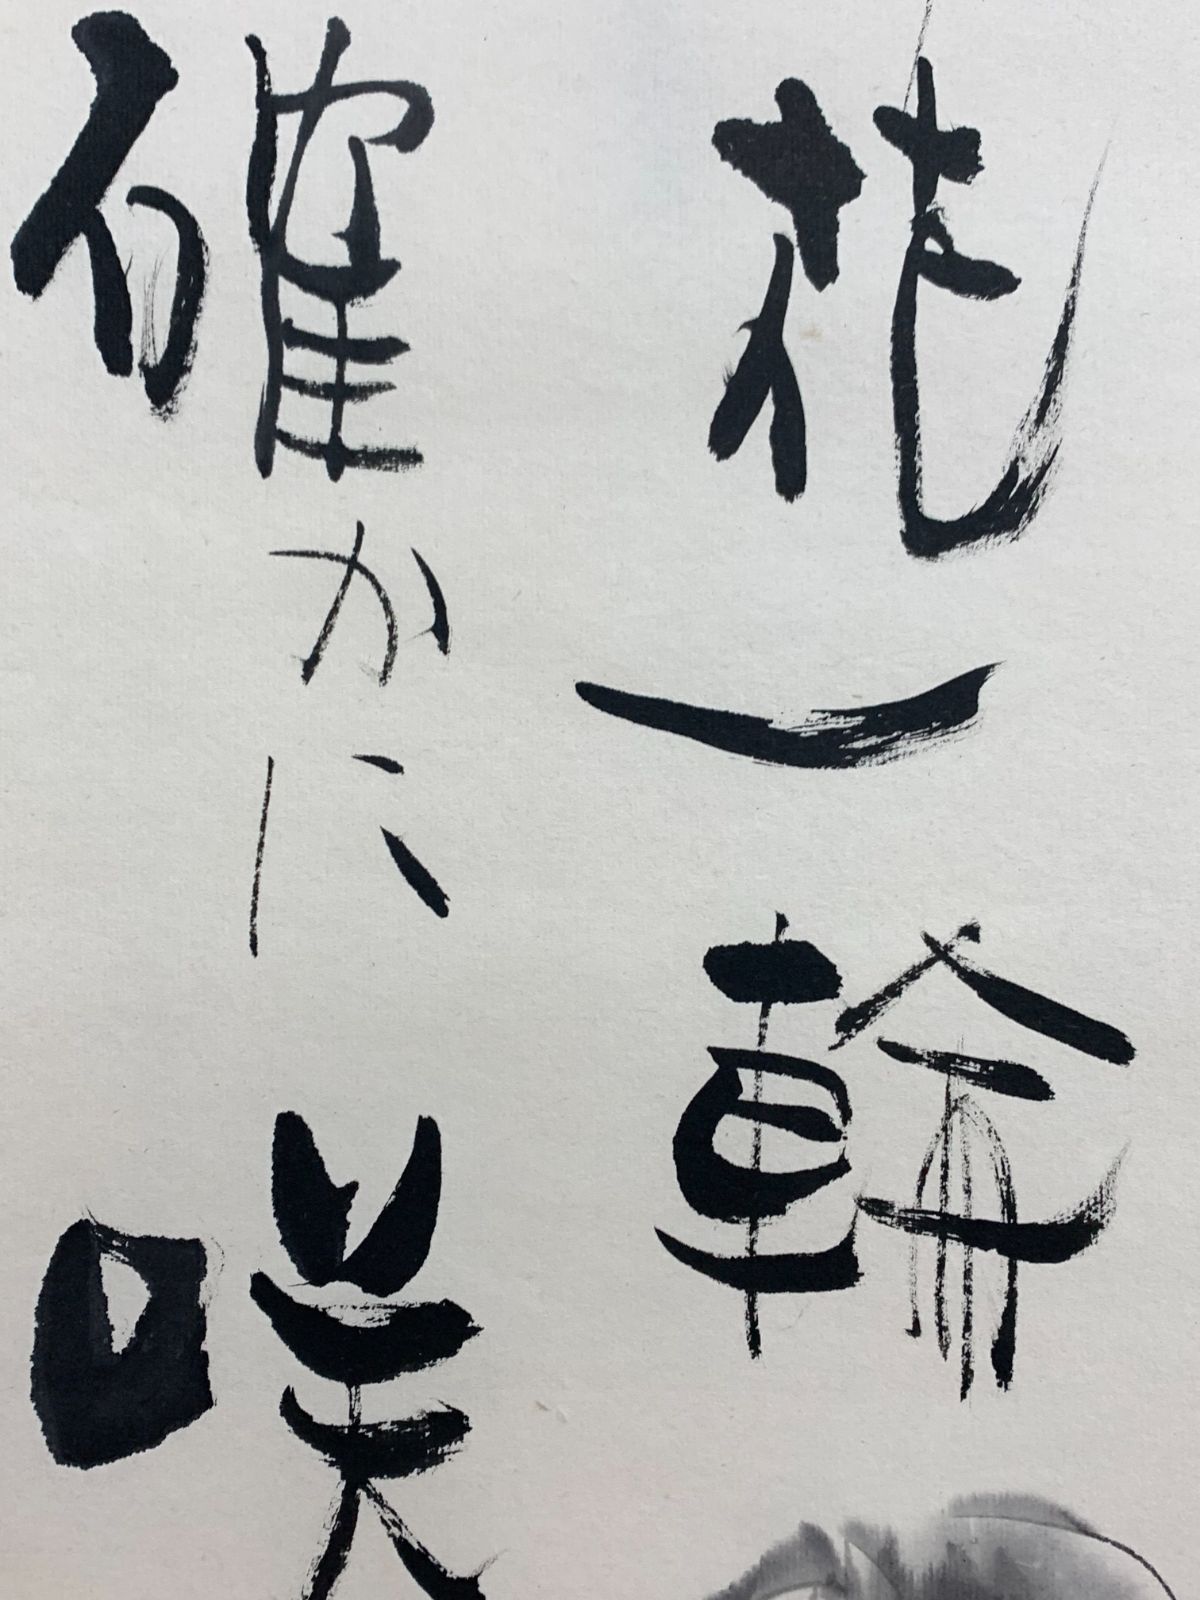 花一輪
確かに咲